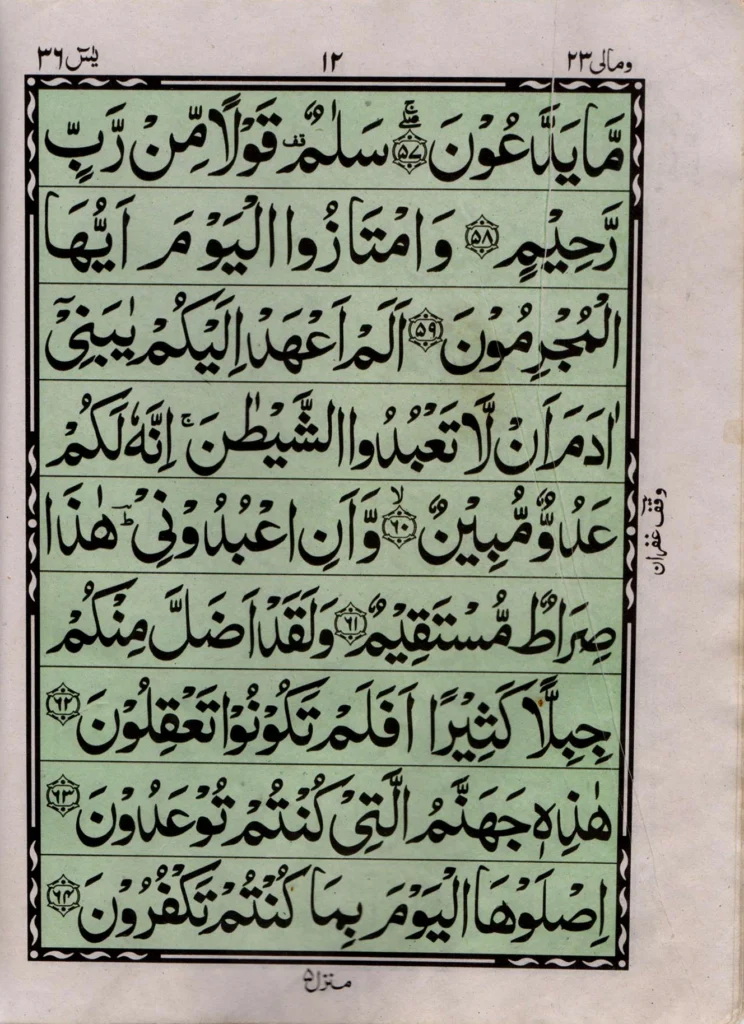 یٰسٓ ٣٦ ١٢ ومالی ٢٣
مَّا يَدَّعُوْنَ ۚۖ ﴿۵۷﴾ سَلٰمٌ قف قَوْلًا مِّنْ رَّبٍّ
رَّحِيْمٍ ﴿۵۸﴾ وَامْتَازُوا الْيَوْمَ اَيُّهَا
الْمُجْرِمُوْنَ ﴿۵۹﴾ اَلَمْ اَعْهَدْ اِلَيْكُمْ يٰبَنِيْٓ
اٰدَمَ اَنْ لَّا تَعْبُدُوا الشَّيْطٰنَ ۚ اِنَّهٗ لَكُمْ
عَدُوٌّ مُّبِيْنٌ ۙ ﴿۶۰﴾ وَّاَنِ اعْبُدُوْنِيْ ؕ هٰذَا
صِرَاطٌ مُّسْتَقِيْمٌ ﴿۶۱﴾ وَلَقَدْ اَضَلَّ مِنْكُمْ
جِبِلًّا كَثِيْرًا اَفَلَمْ تَكُوْنُوْا تَعْقِلُوْنَ ﴿۶۲﴾
هٰذِهٖ جَهَنَّمُ الَّتِيْ كُنْتُمْ تُوْعَدُوْنَ ﴿۶۳﴾
اِصْلَوْهَا الْيَوْمَ بِمَا كُنْتُمْ تَكْفُرُوْنَ ﴿۶۴﴾
وقف غفران
منزل ۵